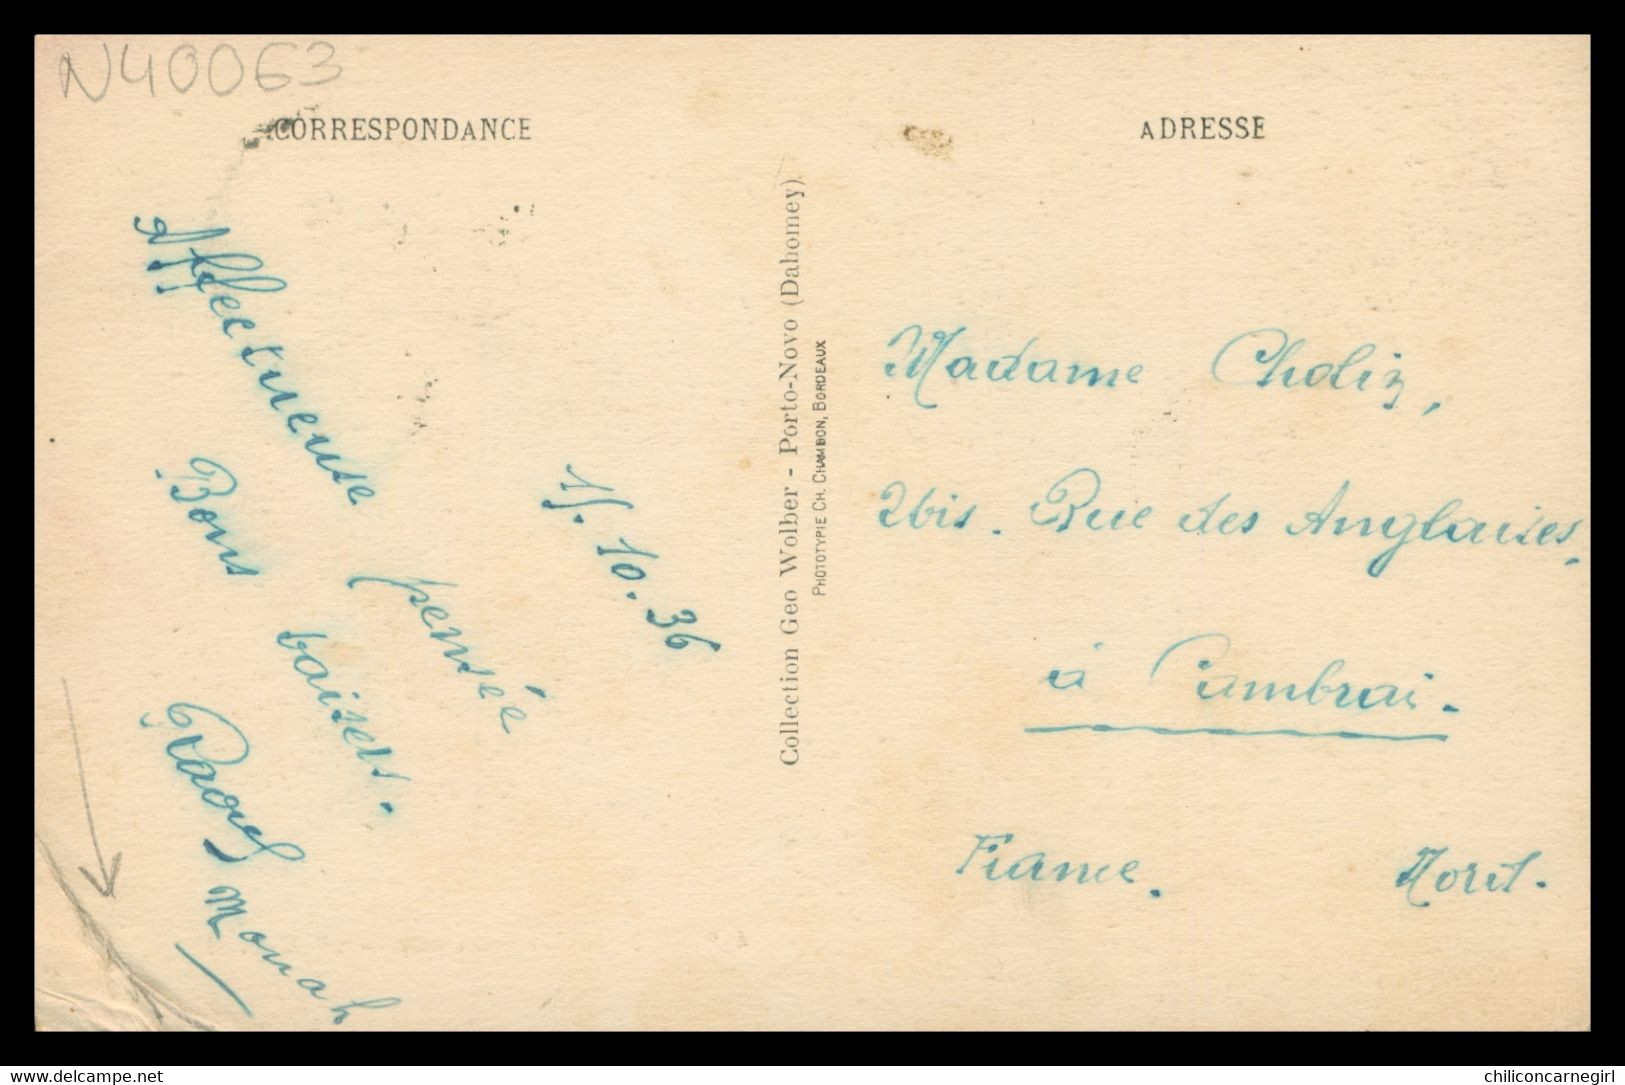 N40063
CORRESPONDANCE
Affectueuse pensée
Bons baisers.
Raoul
1/.10.36
Collection Geo Wolber - Porto-Novo (Dahomey).
PHOTOTYPIE CH. CHAMBON, BORDEAUX
ADRESSE
Madame Choliz,
2bis. Rue des Anglaises,
à Cambrai.
France. Nord.
www.delcampe.net
chiliconcarnegirl